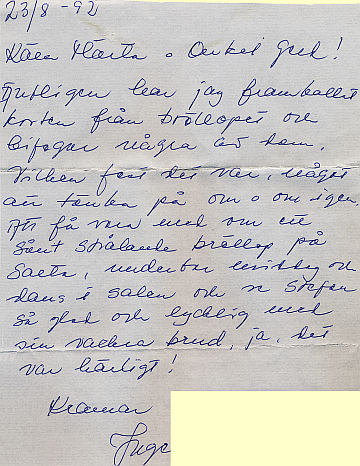 23/8 -92
Kära Märta o Onkel Gred!
Äntligen har jag framkallat
korten från bröllopet och
bifogar några av dem.
Vilken fest det var, något
att tänka på om o om igen.
Att få vara med om ett
sånt strålande bröllop på
Saeta, underbar middag och
dans i salen och se Stefan
så glad och lycklig med
sin vackra brud, ja, det
var härligt!
Kramar
Inge